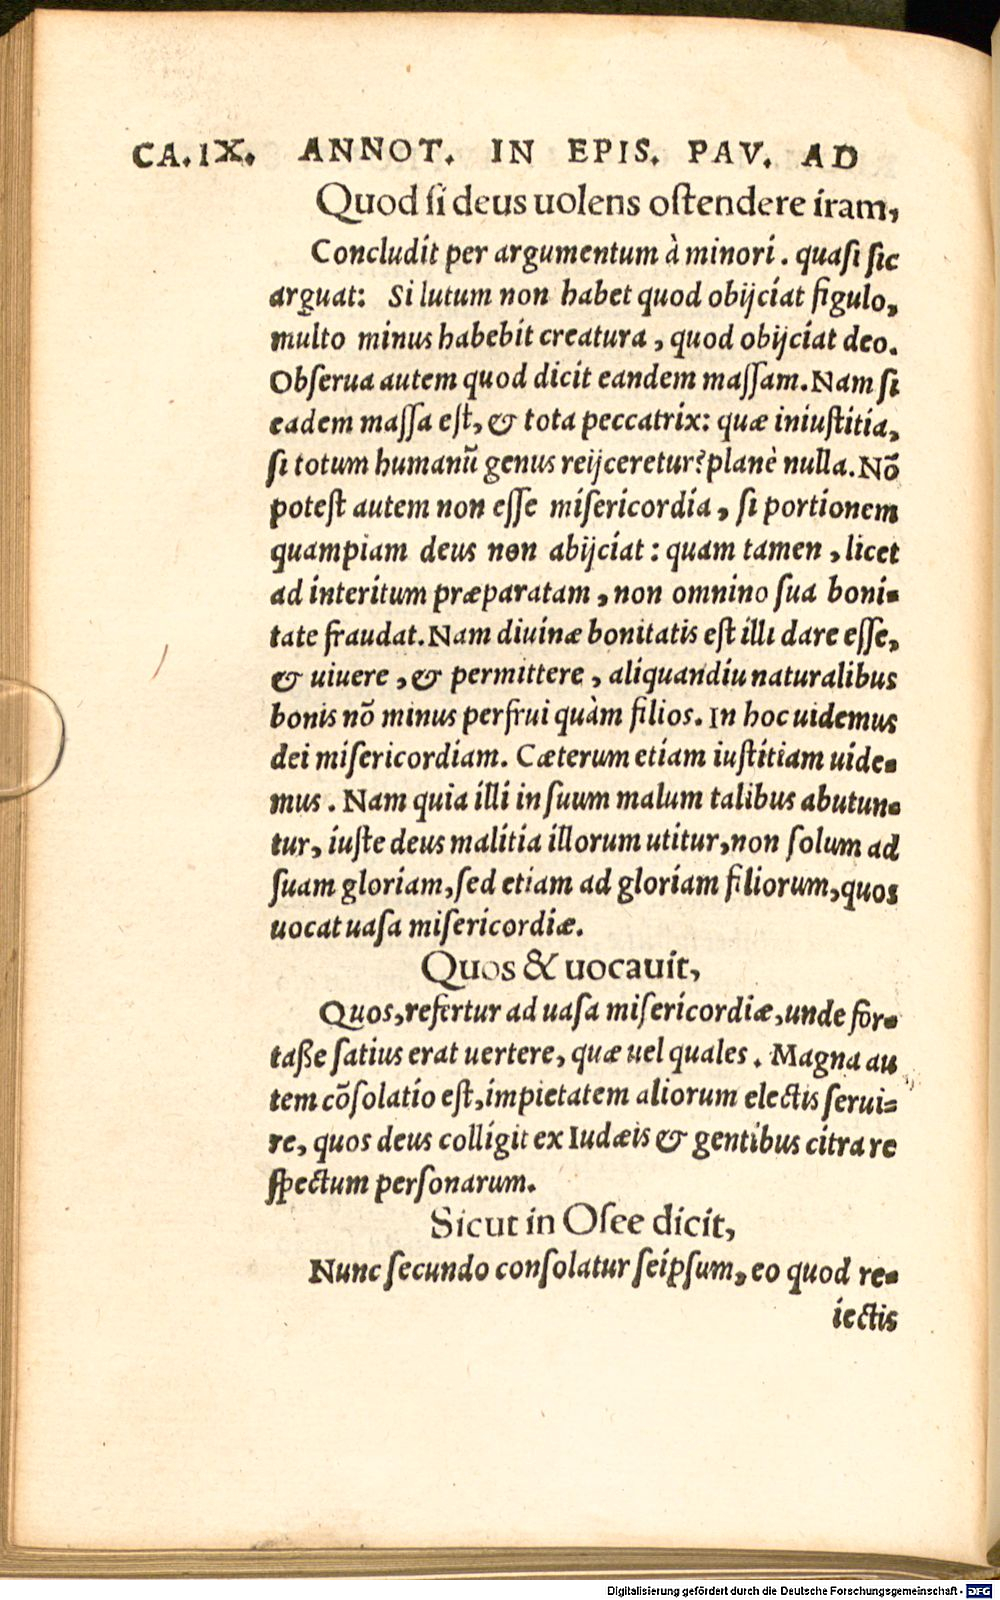 CA.IX. ANNOT. IN EPIS. PAV. AD
Quod ſi deus uolens oſtendere iram,
Concludit per argumentum à minori. quaſi ſic
arguat: Si lutum non habet quod obijciat figulo,
multo minus habebit creatura, quod obijciat deo.
Obſerua autem quod dicit eandem maſſam. Nam ſi
eadem maſſa eſt, & tota peccatrix: quæ iniuſtitia,
ſi totum humanū genus reijceretur? planè nulla. Nō
poteſt autem non eſſe miſericordia, ſi portionem
quampiam deus non abijciat: quam tamen, licet
ad interitum præparatam, non omnino ſua boni-
tate fraudat. Nam diuinæ bonitatis eſt illi dare eſſe,
& uiuere, & permittere, aliquandiu naturalibus
bonis nō minus perfrui quàm filios. In hoc uidemus
dei miſericordiam. Cæterum etiam iuſtitiam uide-
mus. Nam quia illi in ſuum malum talibus abutun-
tur, iuſte deus malitia illorum utitur, non ſolum ad
ſuam gloriam, ſed etiam ad gloriam filiorum, quos
uocat uaſa miſericordiæ.
Quos & uocauit,
Quos, refertur ad uaſa miſericordiæ, unde for-
taße ſatius erat uertere, quæ uel quales. Magna au
tem cōſolatio eſt, impietatem aliorum electis ſerui-
re, quos deus colligit ex Iudæis & gentibus citra re
ſpectum perſonarum.
Sicut in Oſee dicit,
Nunc ſecundo conſolatur ſeipſum, eo quod re-
iectis
Digitalisierung gefördert durch die Deutsche Forschungsgemeinschaft - DFG